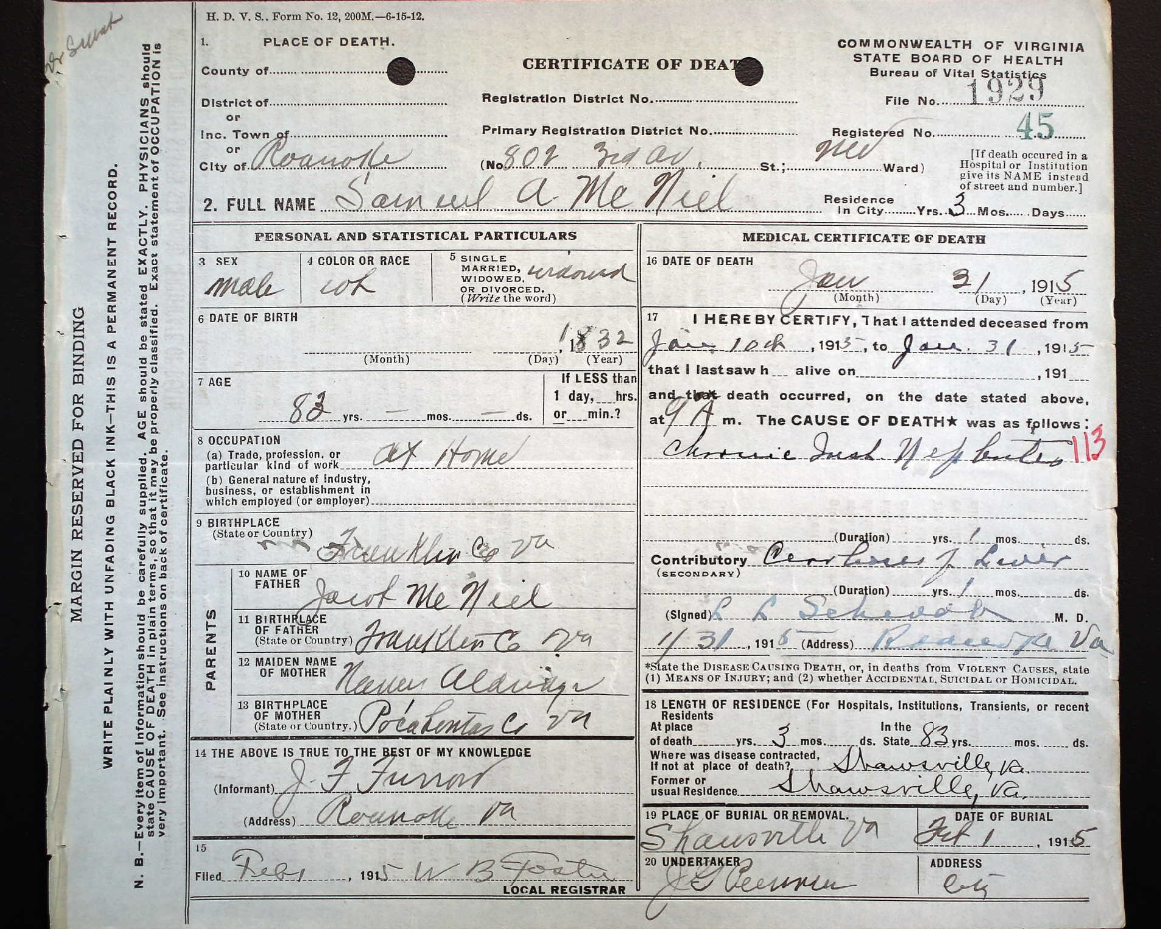 H. D. V. S.. Form No. 12, 200M.—6-15-12.
1. PLACE OF DEATH.
County of
District of
or
Inc. Town of
or
City of Roanoke
CERTIFICATE OF DEAT
Registration District No.
Primary Registration District No.
(No. 802 3rd Av. St.; Ward)
COMMONWEALTH OF VIRGINIA
STATE BOARD OF HEALTH
Bureau of Vital Statistics
File No. 1929
Registered No. 45
[If death occured in a
Hospital or Institution
give its NAME instead
of street and number.]
2. FULL NAME Samuel A McNiel
Residence
In City Yrs. 3 Mos. Days
PERSONAL AND STATISTICAL PARTICULARS
3 SEX
male
4 COLOR OR RACE
wh
5 SINGLE
MARRIED,
WIDOWED,
OR DIVORCED.
(Write the word)
widowed
6 DATE OF BIRTH
1832
(Month) (Day) (Year)
7 AGE
83 yrs. — mos. — ds.
If LESS than
1 day, hrs.
or min.?
8 OCCUPATION
(a) Trade, profession, or
particular kind of work at Home
(b) General nature of industry,
business, or establishment in
which employed (or employer)
9 BIRTHPLACE
(State or Country) Franklin Co Va
PARENTS
10 NAME OF
FATHER Jacob McNiel
11 BIRTHPLACE
OF FATHER
(State or Country) Franklin Co Va
12 MAIDEN NAME
OF MOTHER
13 BIRTHPLACE
OF MOTHER
(State or Country.) Pocahontas Co Va
14 THE ABOVE IS TRUE TO THE BEST OF MY KNOWLEDGE
(Informant) J. F Furrow
(Address) Roanoke Va
15
Filed Feb 1, 1915 W B Foster
LOCAL REGISTRAR
MEDICAL CERTIFICATE OF DEATH
16 DATE OF DEATH
Jan 31, 1915
(Month) (Day) (Year)
17 I HEREBY CERTIFY, That I attended deceased from
Jan. 10th, 1915, to Jan. 31, 1915
that I last saw h alive on , 191
and that death occurred, on the date stated above,
at 9 A m. The CAUSE OF DEATH★ was as follows:
Chronic Nephritis 113
(Duration) yrs. 1 mos. ds.
Contributory
(SECONDARY) Liver
(Duration) yrs. 1 mos. ds.
(Signed) M. D.
1/31, 1915 (Address) Roanoke Va
*State the DISEASE CAUSING DEATH, or, in deaths from VIOLENT CAUSES, state
(1) MEANS OF INJURY; and (2) whether ACCIDENTAL, SUICIDAL or HOMICIDAL.
18 LENGTH OF RESIDENCE (For Hospitals, Institutions, Transients, or recent
Residents
At place In the
of death yrs. 3 mos. ds. State 83 yrs. mos. ds.
Where was disease contracted,
If not at place of death? Shawsville, Va.
Former or
usual Residence Shawsville, Va.
19 PLACE OF BURIAL OR REMOVAL. DATE OF BURIAL
Shawsville Va Feb 1, 1915
20 UNDERTAKER ADDRESS
City
MARGIN RESERVED FOR BINDING
WRITE PLAINLY WITH UNFADING BLACK INK—THIS IS A PERMANENT RECORD.
N. B.—Every item of information should be carefully supplied. AGE should be stated EXACTLY. PHYSICIANS should
state CAUSE OF DEATH in plain terms, so that it may be properly classified. Exact statement of OCCUPATION is
very important. See instructions on back of certificate.